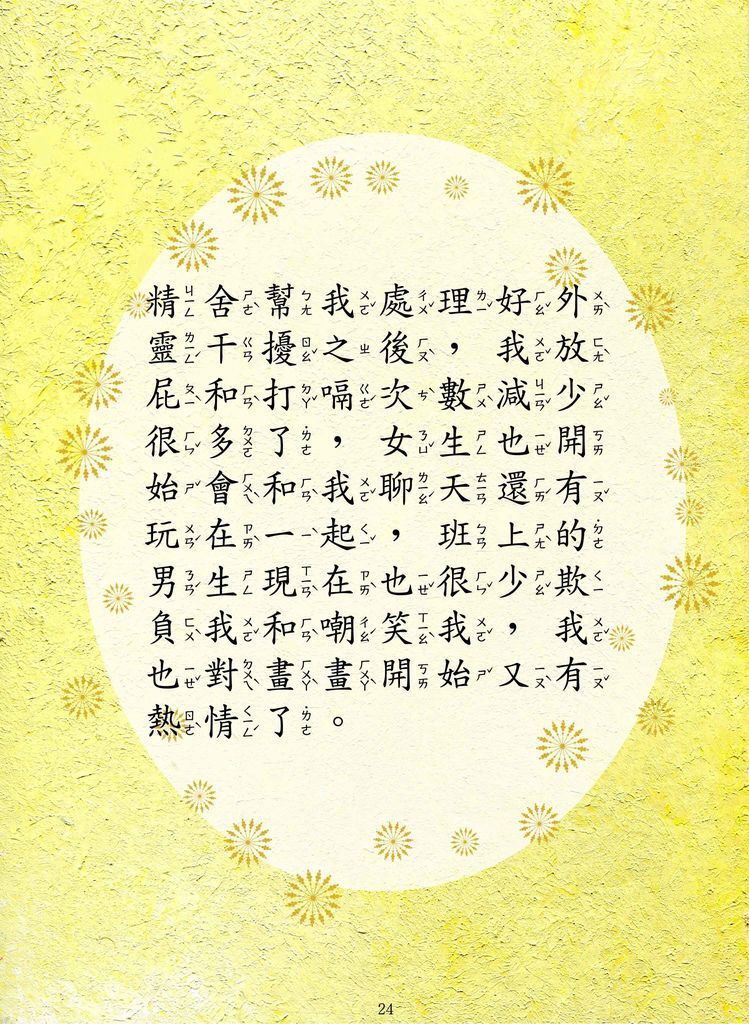 精舍幫我處理好外
靈干擾之後，我放
屁和打嗝次數減少
很多了，女生也開
始會和我聊天還有
玩在一起，班上的
男生現在也很少欺
負我和嘲笑我，我
也對畫畫開始又有
熱情了。
24